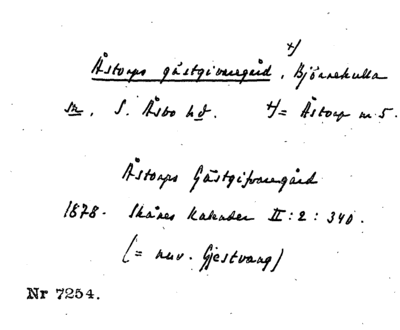 +)
Åstorps gästgivaregård, Björnekulla
sn, S. Åsbo hd. +)= Åstorp nr 5.
Åstorps Gästgifvaregård
1878. Skånes Kalender II:2:340.
(= nuv. Gjestvang)
Nr 7254.